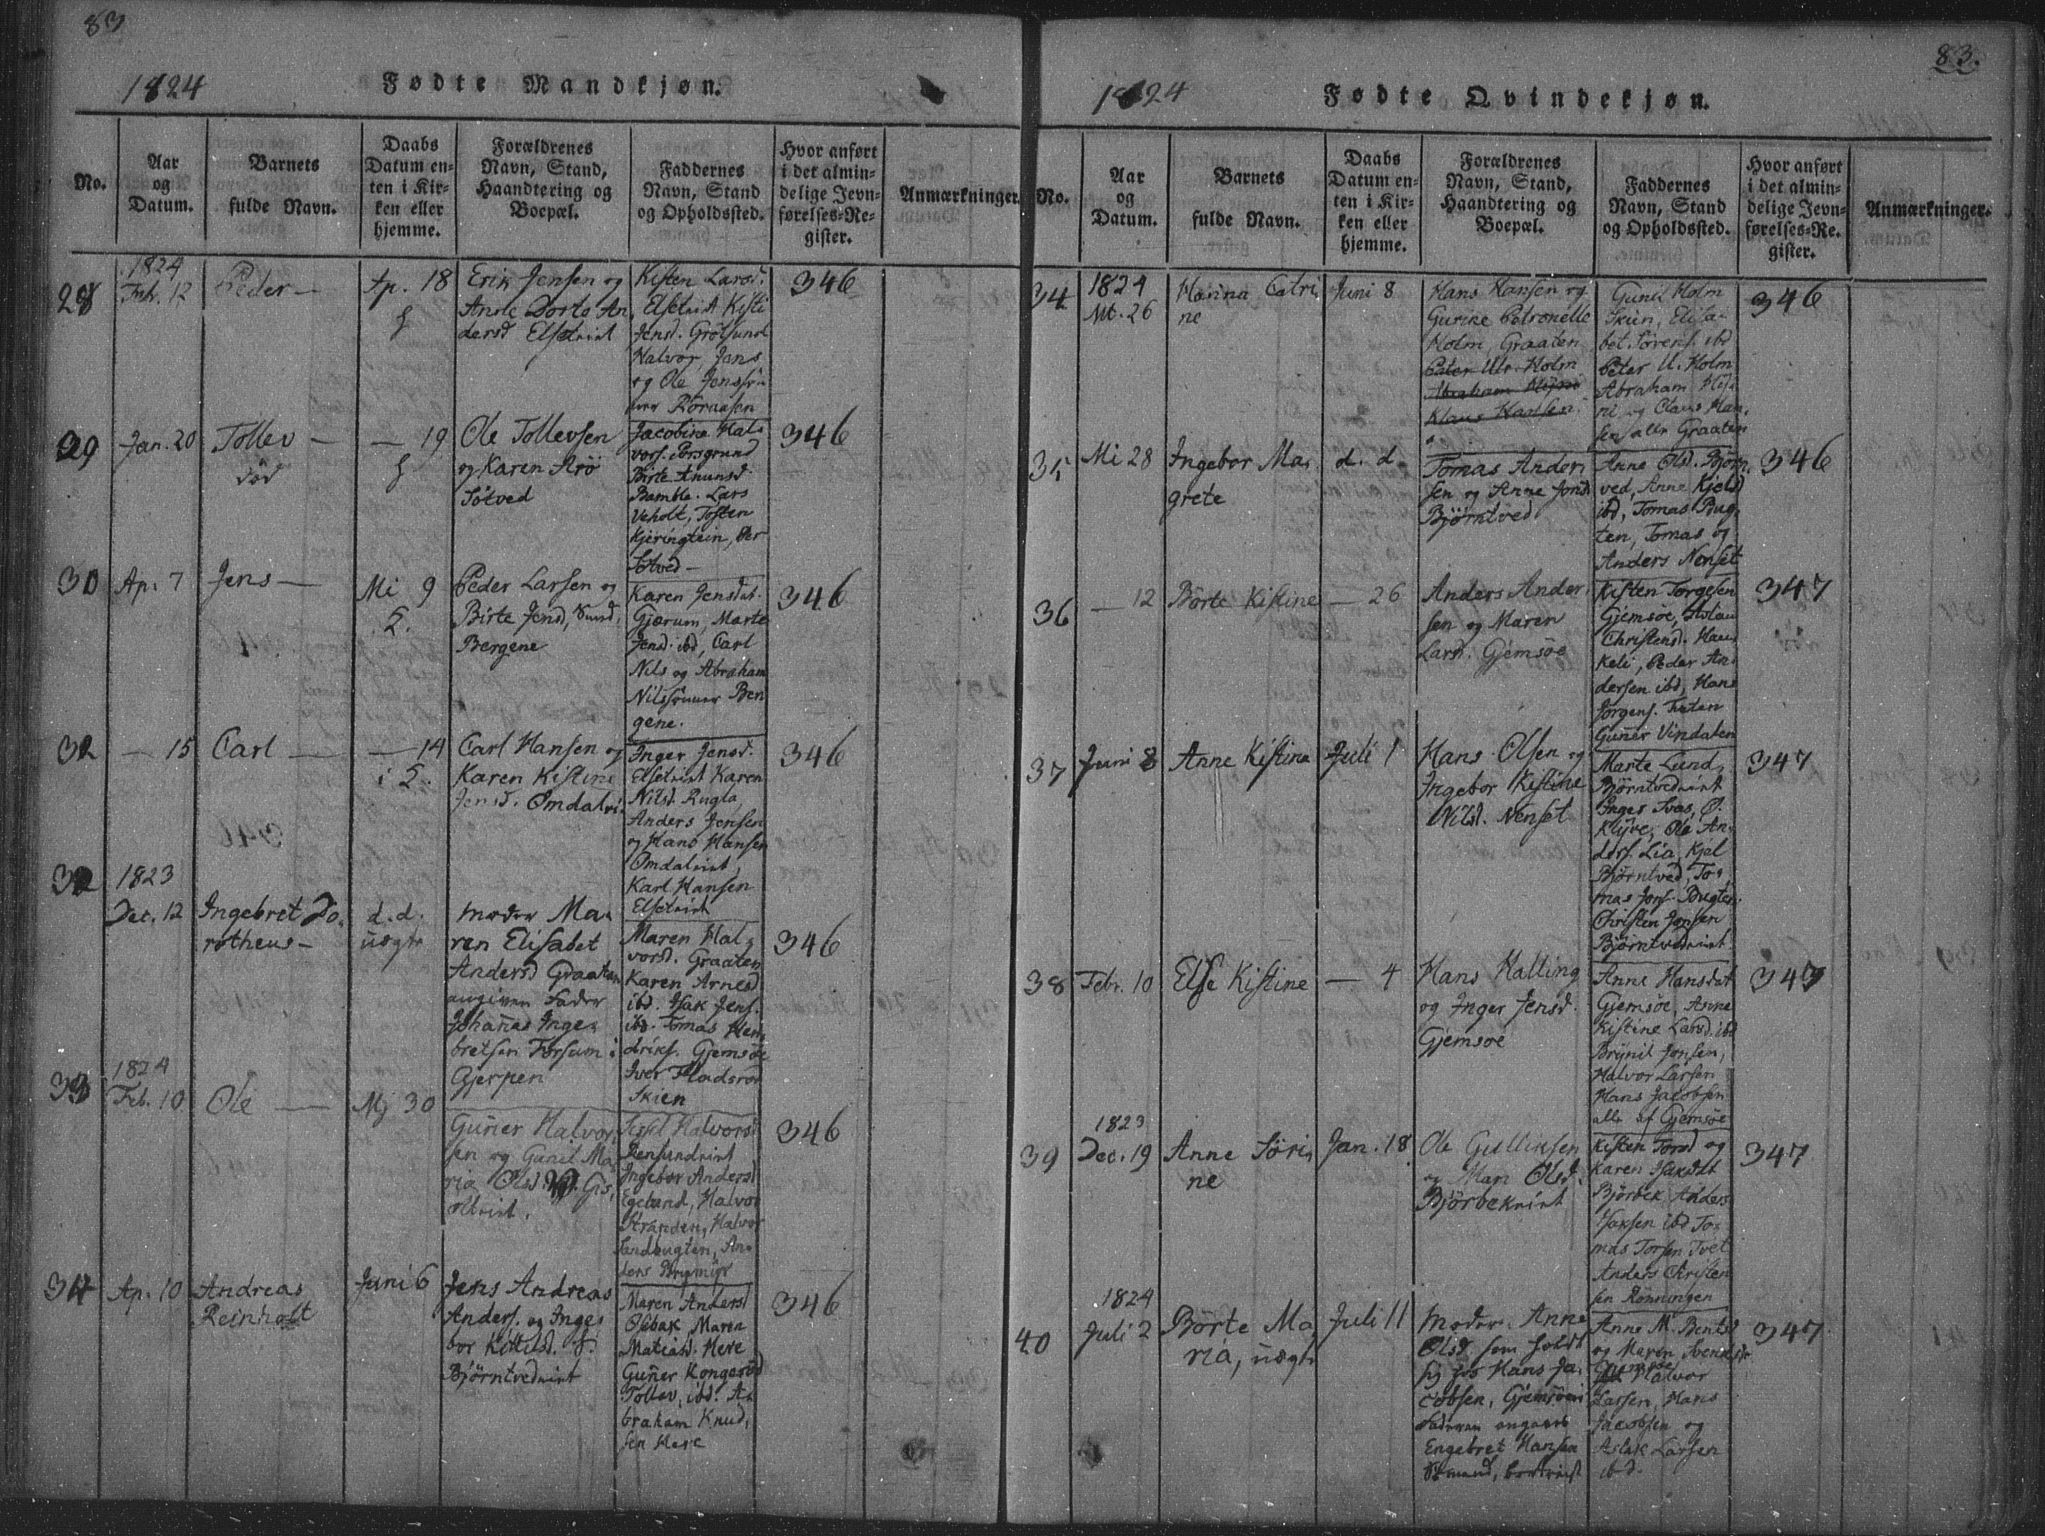 83
1824
Fødte Mandkjøn.
No.
Aar
og
Datum.
Barnets
fulde Navn.
Daabs
Datum en-
ten i Kir-
ken eller
hjemme.
Forældrenes
Navn, Stand,
Haandtering og
Boepæl.
Faddernes
Navn, Stand
og Opholdssted.
Hvor anført
i det almin-
delige Jevn-
førelses-Re-
gister.
Anmærkninger.
28
1824
Feb. 12
Peder
Ap. 18
Erik Jensen og
Anne Dorte An
dersd Elsetrirt
Kisten Larsd.
Elsetrirt Kisti
Jensd. Grøtsund
Halvor, Jans
og Ole Jenssön
ner Röraasen
346
29
Jan. 20
Tollev
död
19
Ole Tollevsen
og Karen Arö
Sötved
Jacobine Hal-
vors. Porsgrund
Birte Knunsd
Bamble. Lars
Veholt, Tosten
Kjeringtein, Per
Sötved
346
30
Ap. 7
Jens
Mi 9
Peder Larsen og
Birte Jensd, Sund,
Bergene
Karen Jensdat.
Gjærum, Marte
Jensd. ibd, Carl
Nils og Abraham
Nilssönner Ber
gene.
346
15
Carl
14
Carl Hansen og
Karen Kistine
Jensd. Omdalri
Inger Jensd.
Elsetrirt Karen
Nilsd. Rugla
Anders Jensen
og Hans Hansen
Omdalrirt
Karl Hansen
Elsetrirt
346
32
1823
Dec. 12
Ingebret Do.
rotheus
d. d.
uægte
moder Ma-
ren Elisabet
Andersd Graaten
angiven Fader
Johanas Inge-
bretsen Forsum i
Gjerpen
Maren Hal-
vorsd. Graaten
Karen Arnesd
ibd. Isak Jens.
ibd. Tomas Hen
driks. Gjemsöe
Iver Fladsrod
Skien
346
33
1824
Feb. 10
Ole
Mj 30
Guner Halvor
sen og Gunil Ma
ria Olsd.
Halvorsd
Ingebor Andersd
Egeland, Halvor
Stranden, Halvor
Sandbugten, An-
ders
346
34
Ap. 10
Andreas
Reinholt
Juni 6
Jens Andreas
Anders. og Inge
bor Kittilsd.
Björntvedrirt
Maren Andersd
Olebak, Maren
Matiasd. Here
Guner Kongeröd
Tollev, ibd. A
braham Knud,
sen Here
346
83.
1824
Fødte Qvindekjøn.
No.
Aar
og
Datum.
Barnets
fulde Navn.
Daabs
Datum en-
ten i Kir-
ken eller
hjemme.
Forældrenes
Navn, Stand,
Haandtering og
Boepæl.
Faddernes
Navn, Stand
og Opholdssted.
Hvor anført
i det almin-
delige Jevn-
førelses-Re-
gister.
Anmærkninger.
34
1824
26
Hanna Catri
ne
Juni 8
Hans Hansen og
Gurine Petronelle
Holm, Graaten
Peter Ulr Holm
Klaus Hansen
Gunil Holm
Skien, Elisa-
bet Sörens. ibd
Peter U. Holm
Abraham
og Claus Han
sen alle Graaten
346
35
Mi 28
Ingebor Ma
grete
d. d.
Tomas Ander
sen og Anne Jonsd
Björntved
Anne Olsd. Björn
ved, Anne Kjelsd
ibd, Tomas Bug
ten, Tomas og
Anders Nenset
346
36
12
Börte Kistine
26
Anders Ander
sen og Maren
Larsd. Gjemsöe
Kisten Torgesen
Gjemsöe, Aslau
Christensd. Hans
Keli, Peder An
dersen ibd, Hans
Jorgens. Tuten
Guner Vindalen
347
37
Juni 8
Anne Kistina
Juli 1
Hans Olsen og
Ingebor Kistine
Nilsd. Nenset
Marte Lund,
Björntvedrirt
Inger
Klyve, Ole An-
ders. Lia, Kjel
Björntved, To-
mas Jons. Bugten
Christen Jonsen
Björntvedrirt
347
38
Febr. 10
Else Kistine
4
Hans Halling
og Inger Jensd.
Gjemsöe
Anne Hansdat
Gjemsöe, Anne
Kistine Larsd. ibd
Brynil Jonsen,
Halvor Larsen
Hans Jacobsen
alle af Gjemsöe
347
39
1823
Dec. 19
Anne Söri
ne
Jan. 18
Ole Gulliksen
og Mari Olsd.
Björbekrirt
Kisten Torsd og
Karen Isaksdt
Björbek Anders
Isaksen ibd To-
mas Torsen Tvet
Anders Christen
sen Rönningen
347
40
1824
Juli 2
Börte Ma
ria, uægte
Juli 11
moder Anne
Olsd som
sig hos Hans Ja
cobsen, Gjemsöen
Faderen angaves
Engebret Hansen
Anne M. Bentsd
og Maren Svendsd
Gjemsöe
Halvor
Larsen, Hans
Jacobsen og
Aslak Larsen
ibd.
347